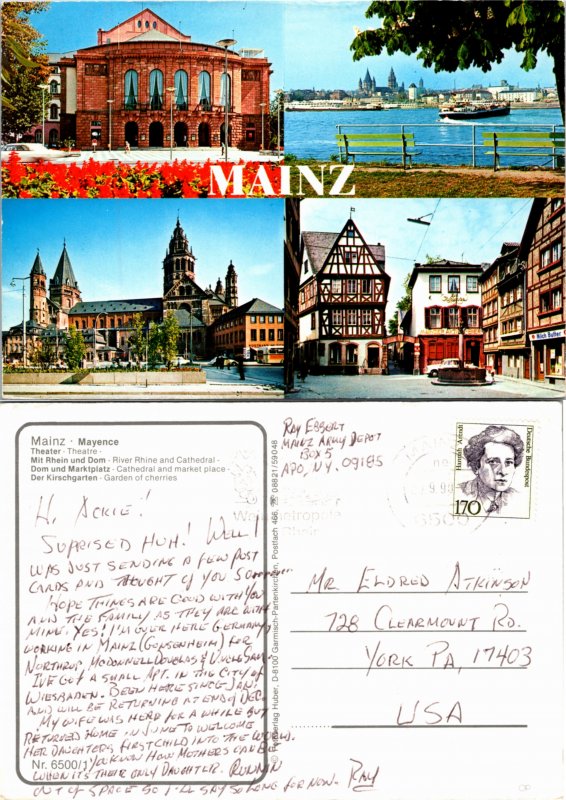 MAINZ
Milch Butter
Mainz · Mayence
Theater · Theatre ·
Mit Rhein und Dom · River Rhine and Cathedral ·
Dom und Marktplatz · Cathedral and market place ·
Der Kirschgarten · Garden of cherries
Hi, Ackie!
Suprised Huh! Well I
was just sending a few post
cards and thought of you so
Hope things are good with you
and the family as they are with
mine. Yes! I'm over here Germany
working in Mainz (Gonsenheim) for
Northrop, McDonnell Douglas & Uncle Sam.
I've got a small Apt. in the city of
Wiesbaden. Been here since Jan!
and will be returning at end of Dec.
My wife was here for a while but
returned home in June to welcome
her daughters first child into the world.
You know how mothers can be
when its their only daughter. Runnin
out of space so I'll say so long for now. Ray
Nr. 6500/1
© Huber, D-8100 Garmisch-Partenkirchen, Postfach 466, 08821/59048
Ray Ebbert
Mainz Army Depot
Box 5
APO, N.Y. 09185
9.9
6500
Hannah Arendt
Deutsche Bundespost
170
Mr Eldred Atkinson
728 Clearmount Rd.
York PA, 17403
USA